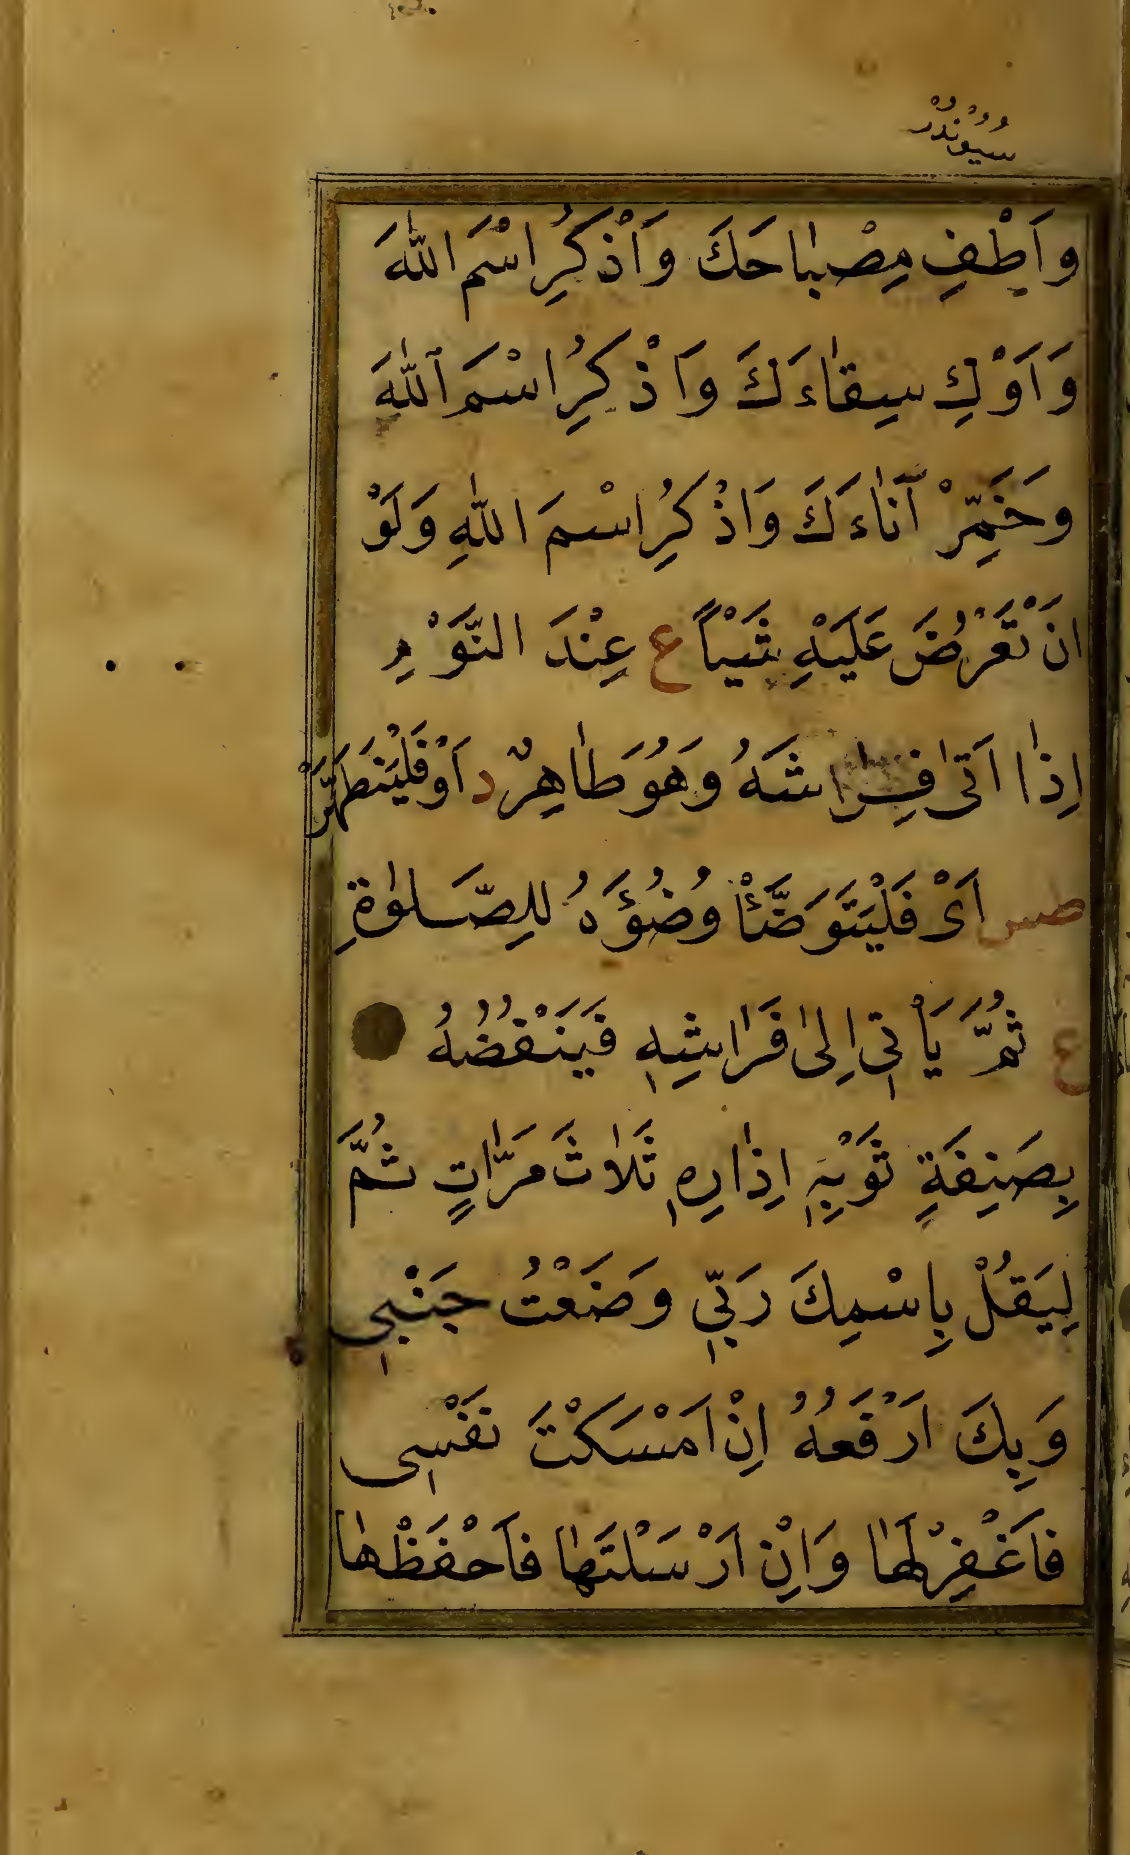 سيوندر
وَاَطْفِ مِصْبٰاحَكَ وَاذْكُرِ اسْمَ اللّٰهَ
وَاَوْكِ سِقٰاءَكَ وَاذْكُرِ اسْمَ اللّٰهَ
وَخَمِّرْ آنٰاءَكَ وَاذْكُرِ اسْمَ اللّٰهِ وَلَوْ
اَنْ تَعْرُضَ عَلَيْهِ شَيْاً ع عِنْدَ النَّوْمِ
اِذٰا اَتٰى فِراشَهُ وَهُوَ طٰاهِرٌ د اَوْ فَلْيَتَطَهَّرْ
طس اَىْ فَلْيَتَوَضَّئْا وُضُؤَهُ لِلصَّلوٰةِ
ع ثُمَّ يَأْتِى اِلىٰ فَرٰاشِهِ فَيَنْفُضُهُ
بِصَنِفَةِ ثَوْبِهِ اِذٰارِهِ ثَلٰاثَ مَرّٰاتٍ ثُمَّ
لِيَقُلْ بِاسْمِكَ رَبِّي وَضَعْتُ جَنْبِي
وَبِكَ اَرْفَعُهُ اِنْ اَمْسَكْتَ نَفْسِى
فَاغْفِرْ لَهٰا وَاِنْ اَرْسَلْتَهٰا فَاحْفَظْهٰا